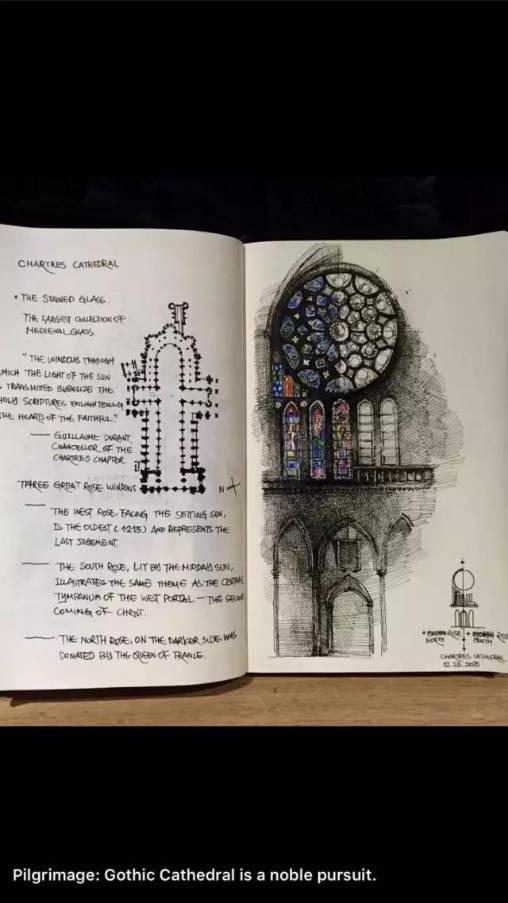 CHARTRES CATHEDRAL
• THE STAINED GLASS.
THE LARGEST COLLECTION OF
MEDIEVAL GLASS.
"THE WINDOWS THROUGH
WHICH THE LIGHT OF THE SUN
TRANSMITED SYMBOLIZE THE
HOLY SCRIPTURES ENLIGHTENING
THE HEARTS OF THE FAITHFUL."
— GUILLAUME DURANT,
CHANCELLOR OF THE
CHARTRES CHAPTER.
THREE GREAT ROSE WINDOWS
N
— THE WEST ROSE, FACING THE SETTING SUN,
IS THE OLDEST (1215) AND REPRESENTS THE
LAST JUDGEMENT.
— THE SOUTH ROSE, LIT BY THE MIDDAY SUN,
ILLUSTRATES THE SAME THEME AS THE CENTRAL
TYMPANUM OF THE WEST PORTAL — THE SECOND
COMING OF CHRIST.
— THE NORTH ROSE, ON THE DARKER SIDE, WAS
DONATED BY THE QUEEN OF FRANCE.
ROSE
NORTH
SOUTH
CHARTRES CATHEDRAL
Pilgrimage: Gothic Cathedral is a noble pursuit.